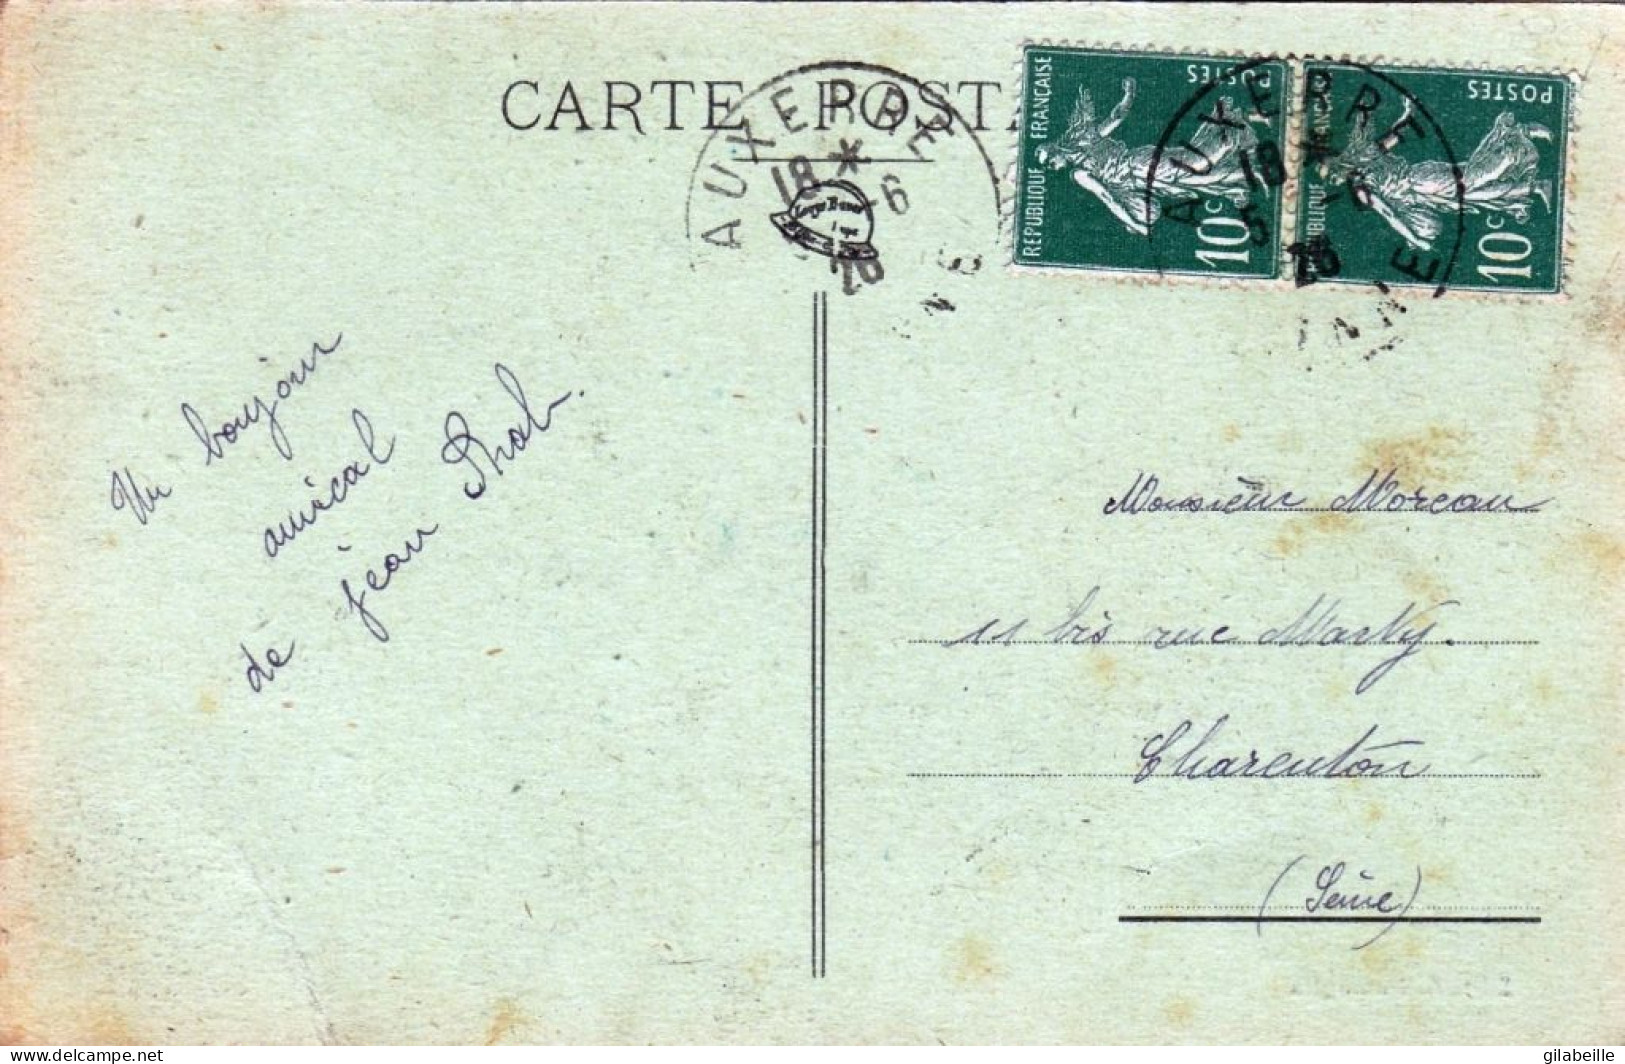 CARTE POSTA
AUXERRE
18 * -6
YONNE
REPUBLIQUE FRANÇAISE
POSTES
10c
POSTES
10c
AUXERRE
18 * -6
5
26
Un bonjour
amical
de jean
Monsieur Moreau
11 bis rue Marty.
Charenton
(Seine)
www.delcampe.net
gilabeille